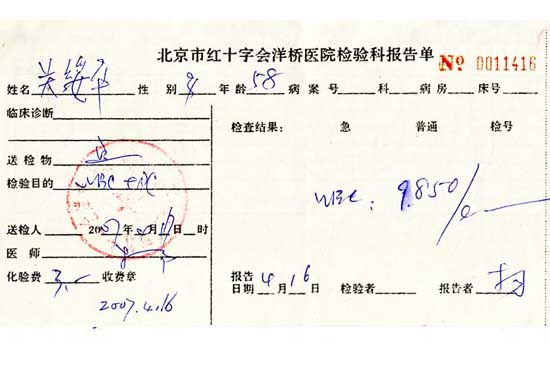 北京市红十字会洋桥医院检验科报告单
No 0011416
姓名 性别 男 年龄 58 病案号 科 病房 床号
临床诊断
检查结果: 急 普通 检号
送检物 血
检验目的 WBC
WBC: 9.850/
送检人 2007年 月 日 时
医师
化验费 3.- 收费章
报告日期 4月16日 检验者 报告者
2007.4.16